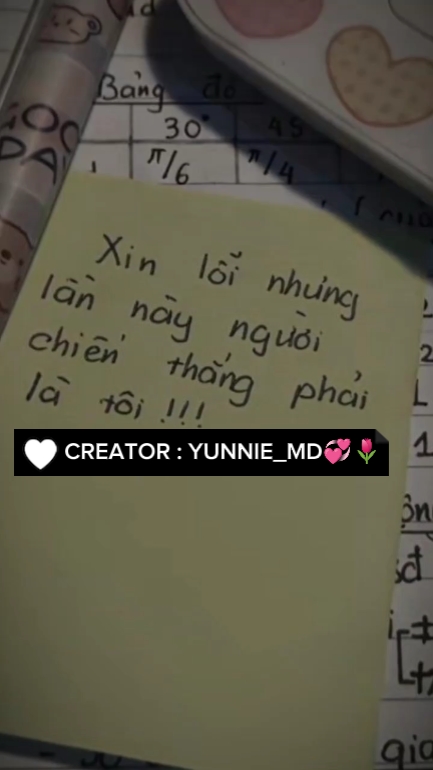 Bảng đo
30° 45
π/6 π/4
Xin lỗi nhưng
lần này người
chiến thắng phải
là tôi !!!
CREATOR : YUNNIE_MD💞🌷